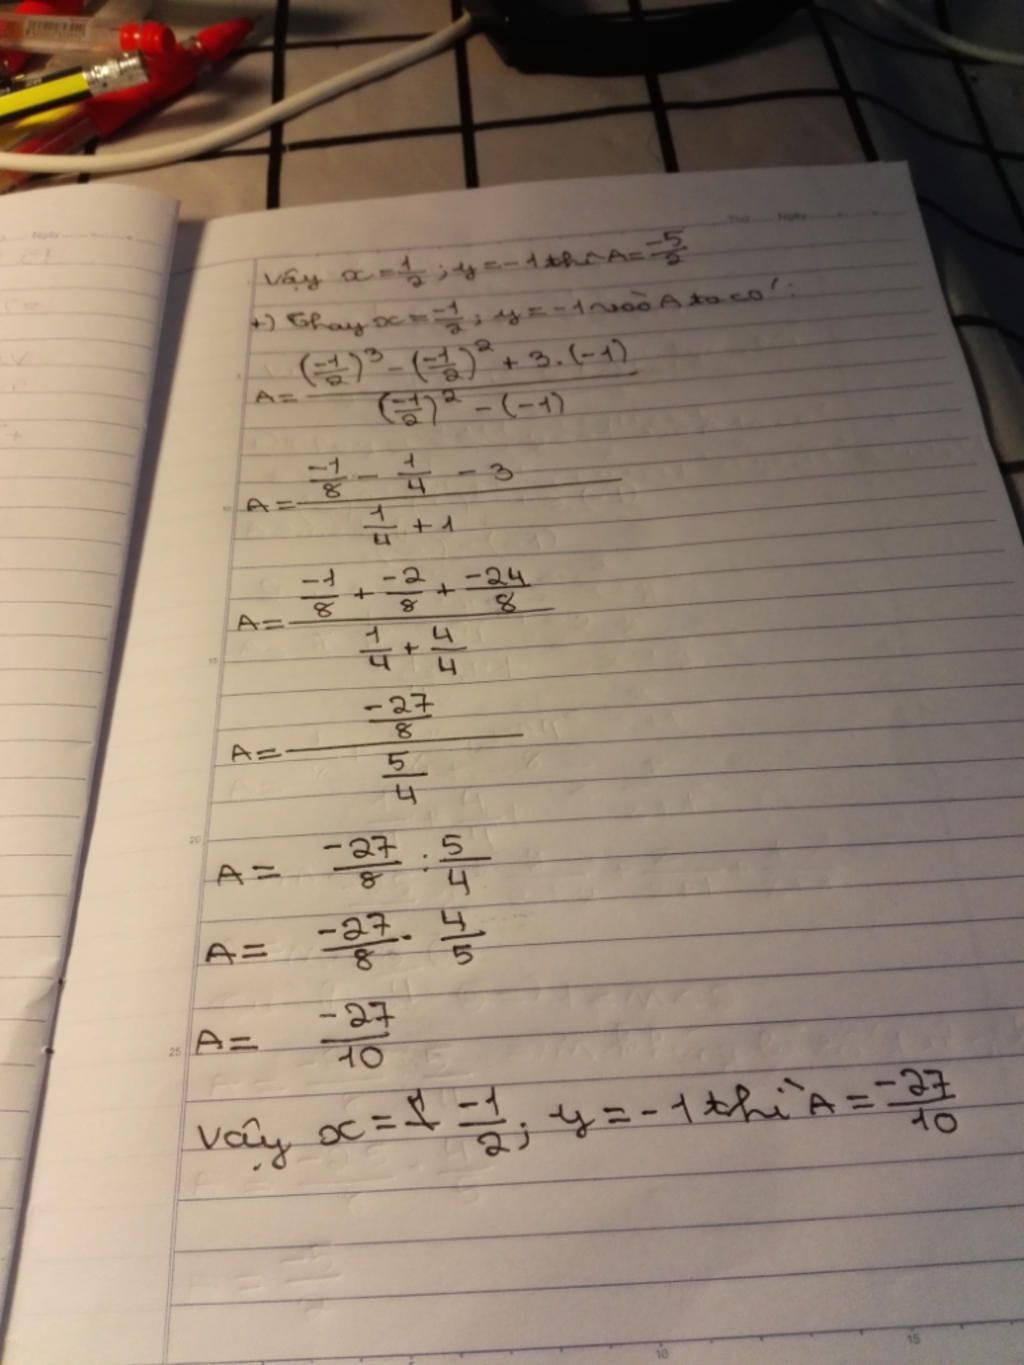 Vậy x = 1/2 ; y = -1 thì A = -5/2
+) Thay x = -1/2 ; y = -1 vào A ta có :
A = ((-1/2)^3 - (-1/2)^2 + 3 . (-1)) / ((-1/2)^2 - (-1))
A = (-1/8 - 1/4 - 3) / (1/4 + 1)
A = (-1/8 + -2/8 + -24/8) / (1/4 + 4/4)
A = (-27/8) / (5/4)
A = -27/8 : 5/4
A = -27/8 . 4/5
A = -27/10
Vậy x = -1/2 ; y = -1 thì A = -27/10
20
25
10
15